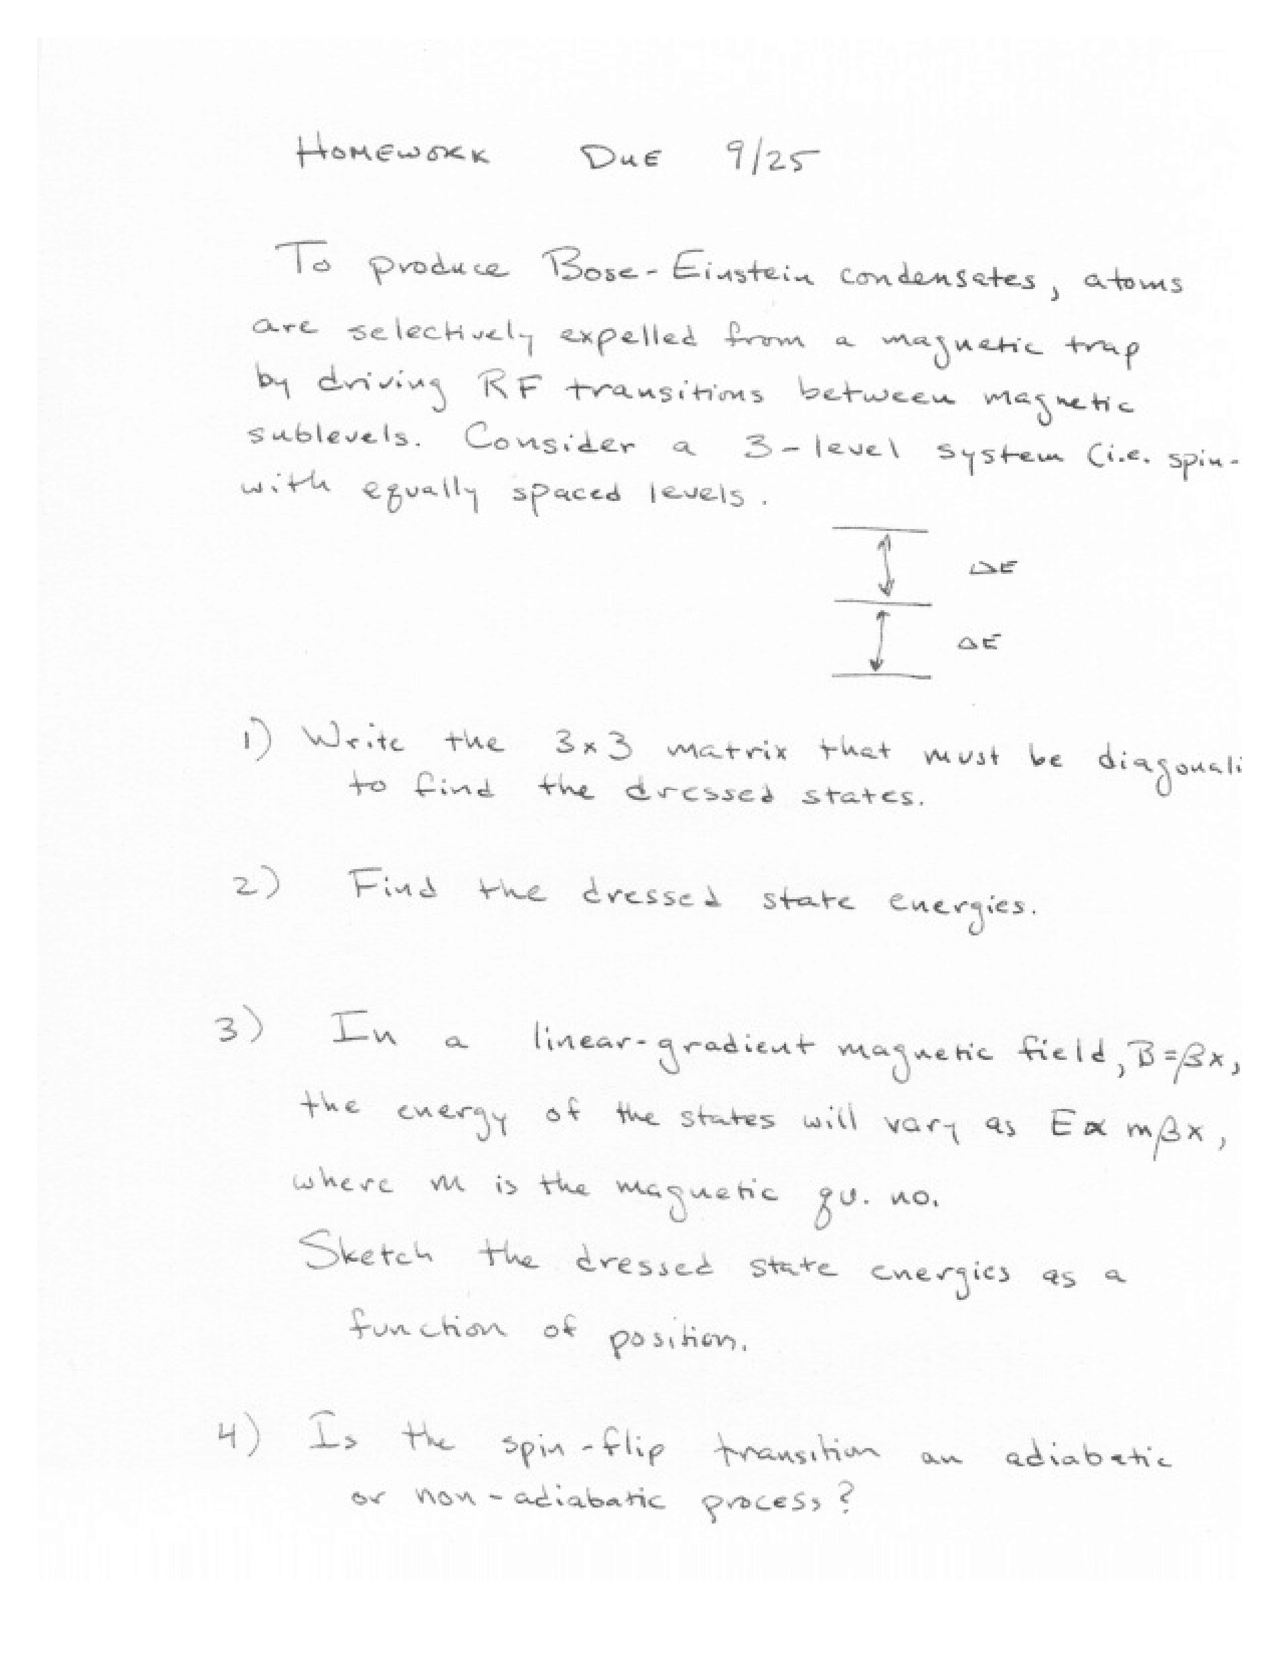 HOMEWORK DUE 9/25
To produce Bose-Einstein condensates, atoms
are selectively expelled from a magnetic trap
by driving RF transitions between magnetic
sublevels. Consider a 3-level system (i.e. spin-
with equally spaced levels.
ΔE
ΔE
1) Write the 3x3 matrix that must be diagonali
to find the dressed states.
2) Find the dressed state energies.
3) In a linear-gradient magnetic field, B=βx,
the energy of the states will vary as E ∝ mβx,
where m is the magnetic qu. no.
Sketch the dressed state energies as a
function of position.
4) Is the spin-flip transition an adiabatic
or non-adiabatic process?